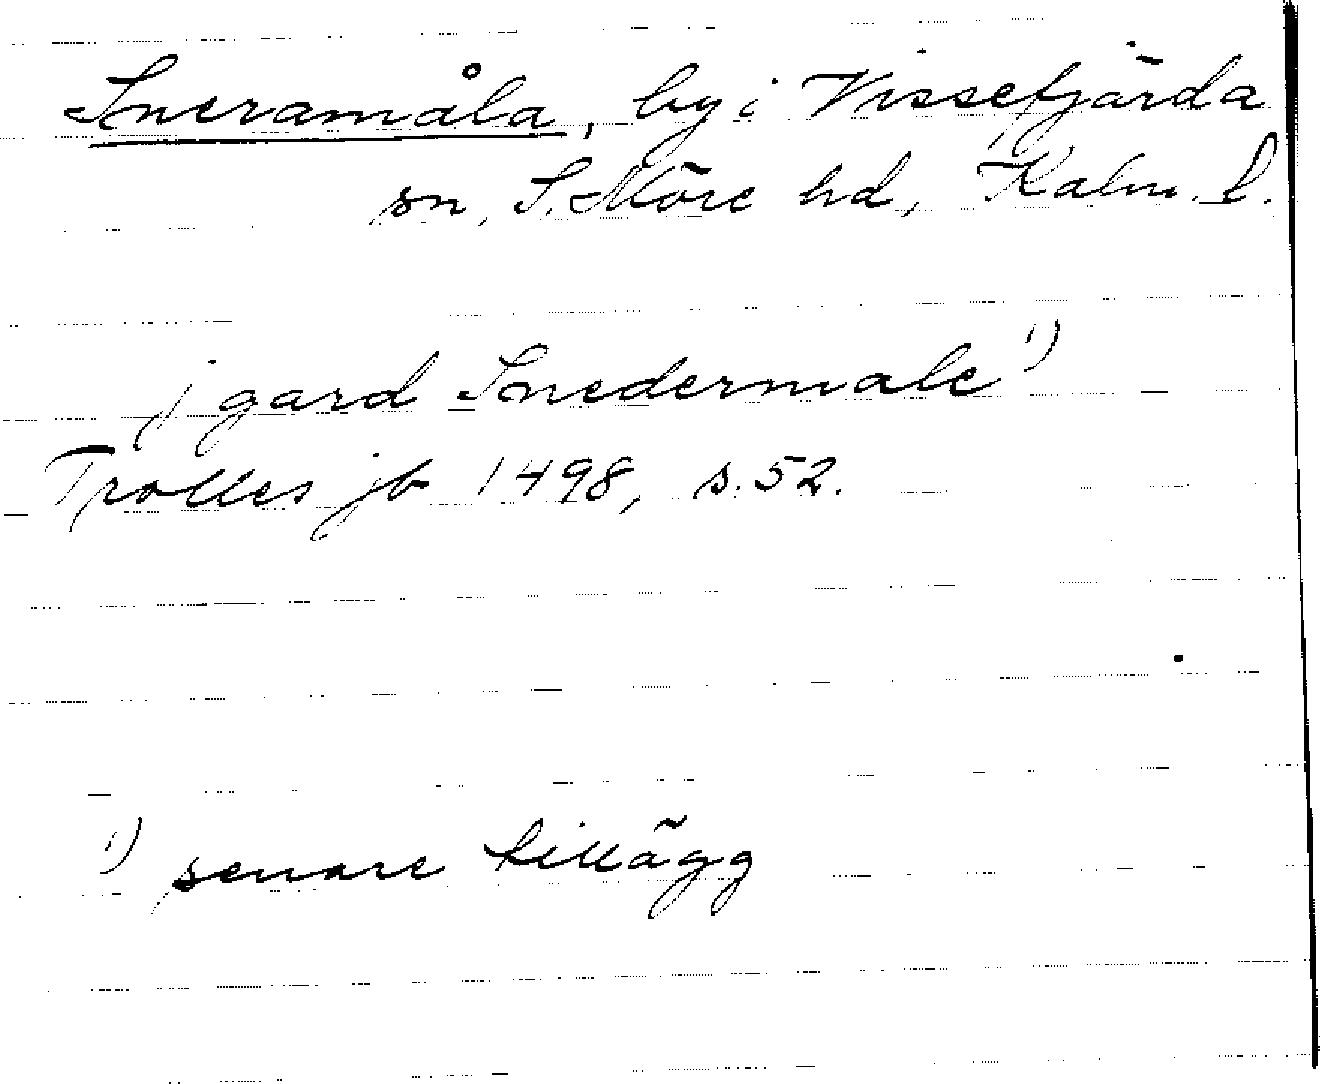 Sneramåla, by i Vissefjärda
sn, S. Möre hd, Kalm. l.
j gard Snedermale 1)
Trolles jb 1498, s. 52.
1) senare tillägg